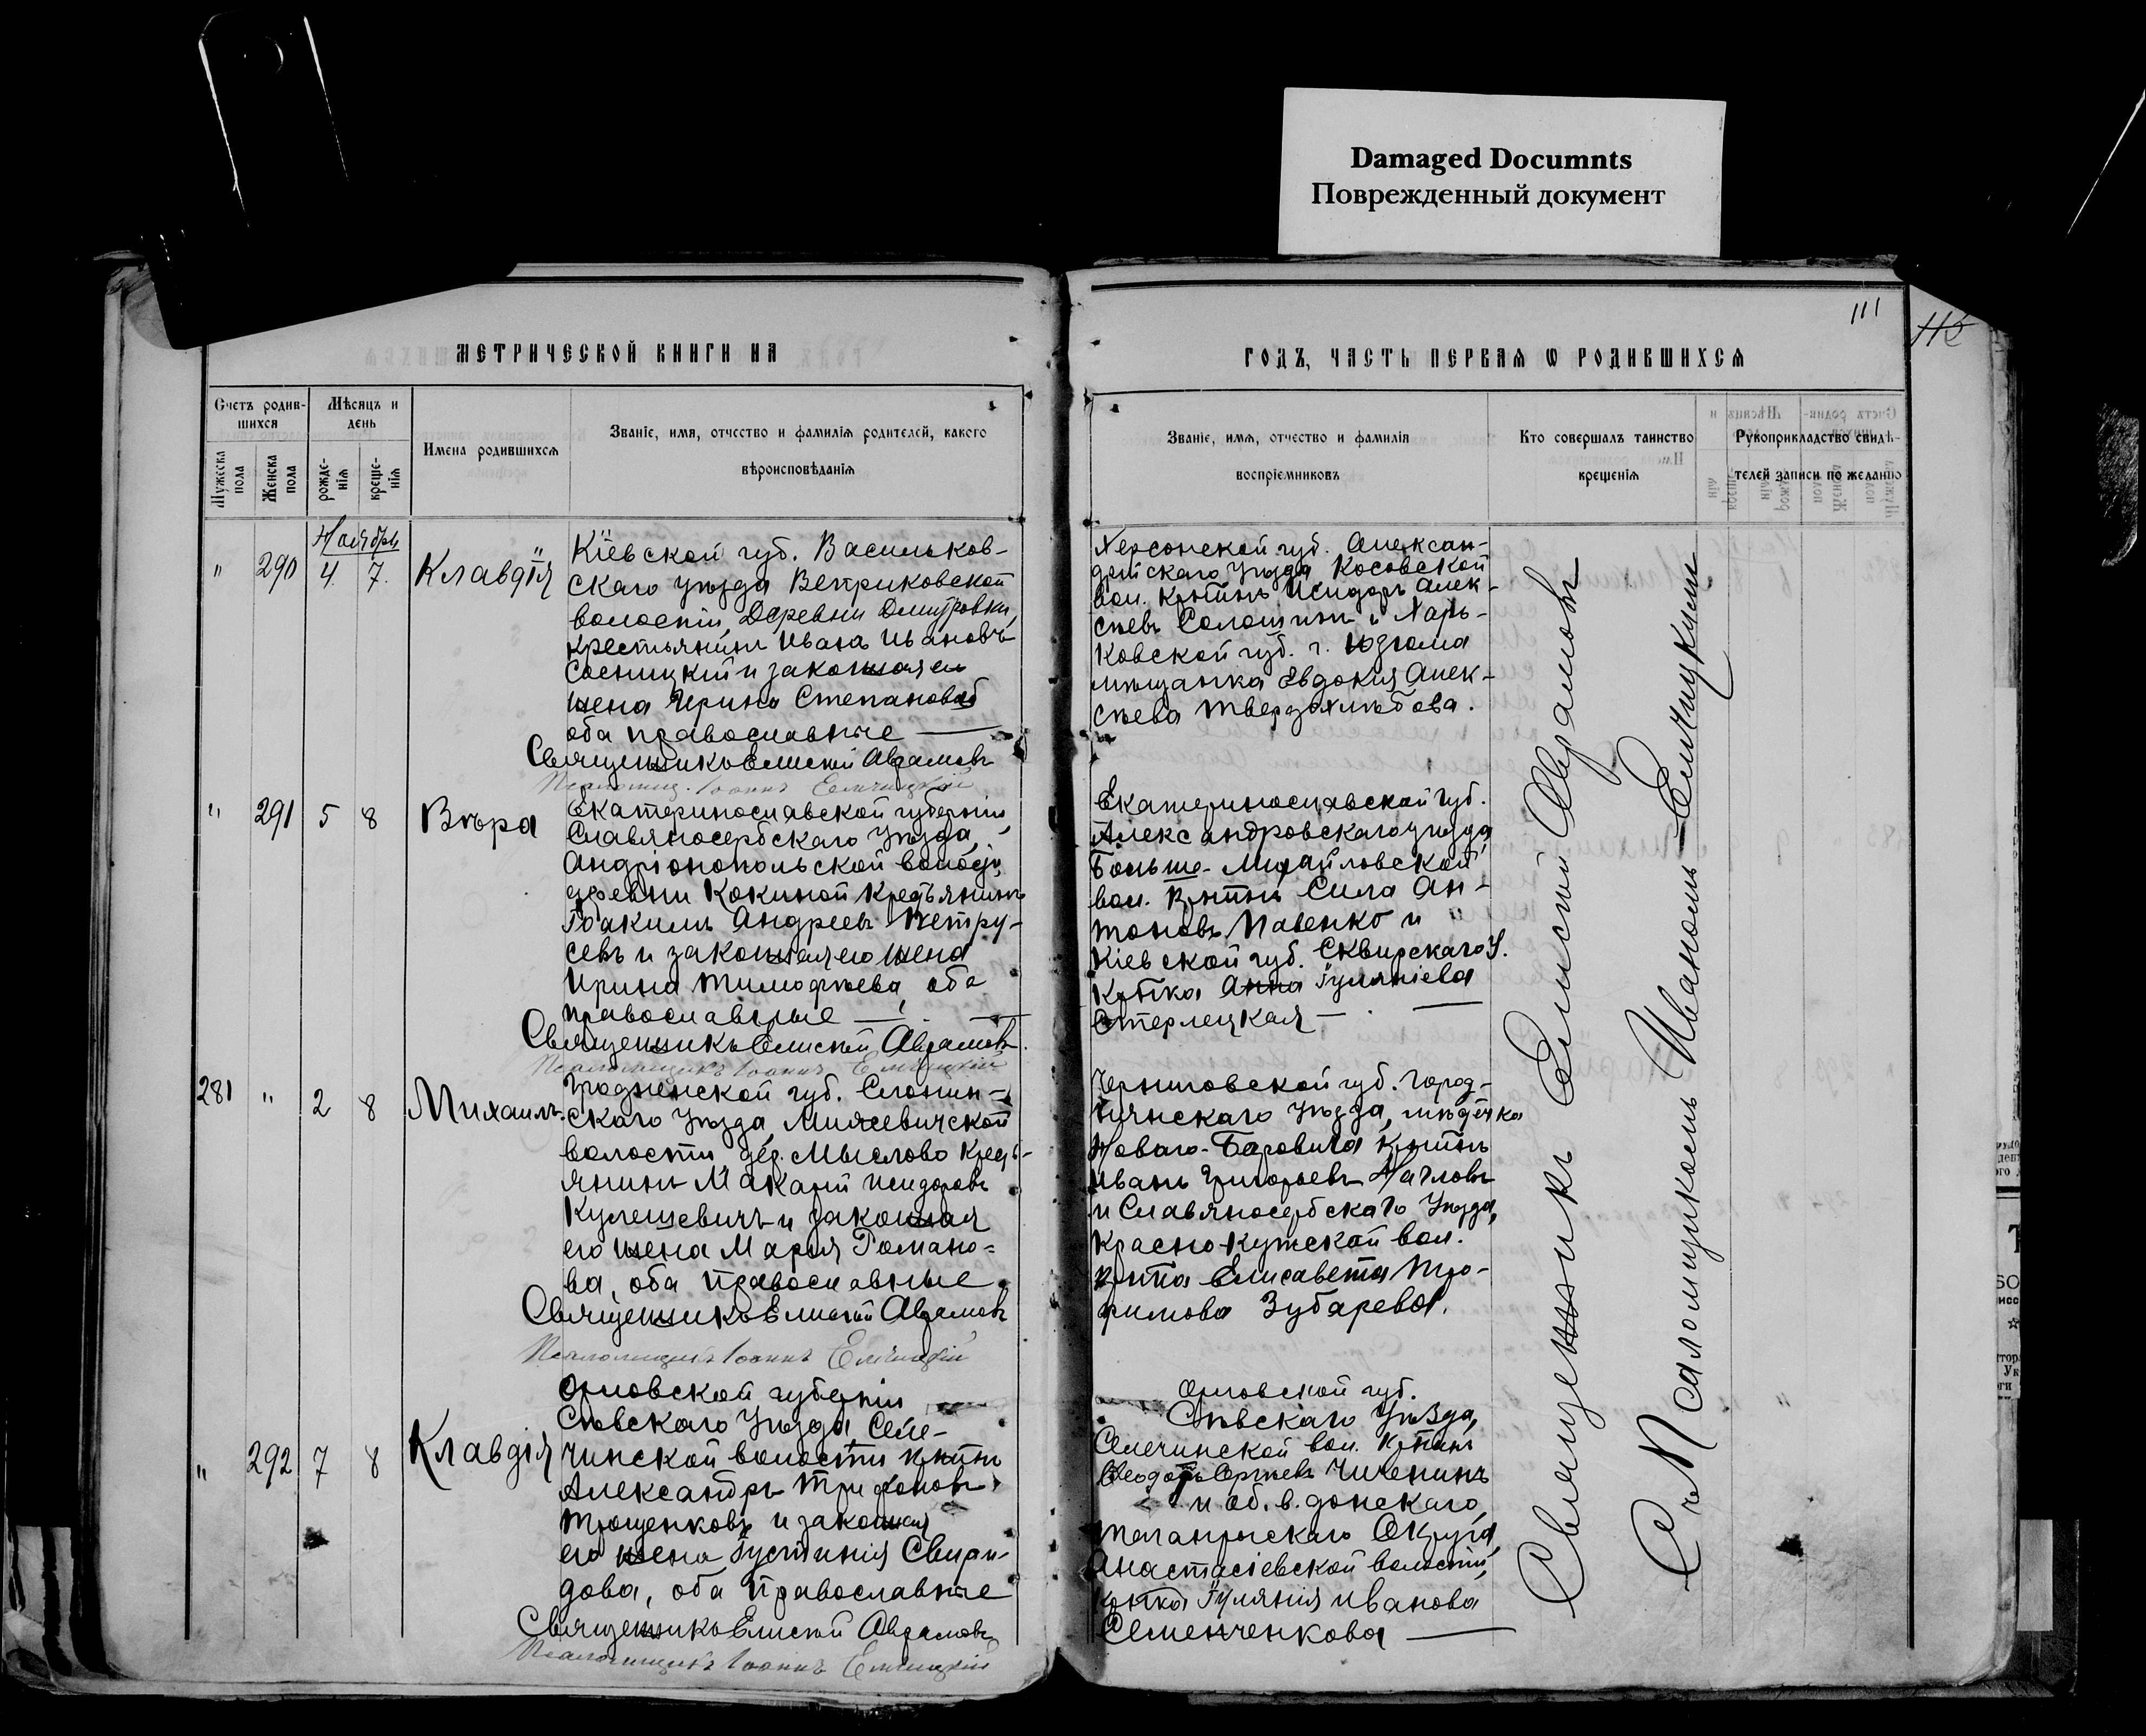 Damaged Documnts
Поврежденный документ
111
МЕТРИЧЕСКОЙ КНИГИ НА
ГОДЪ, ЧАСТЬ ПЕРВАЯ Ѡ РОДИВШИХСЯ
Счетъ родив-
шихся
Мѣсяцъ и
день
Мужеска
пола
Женска
пола
рожде-
нія
креще-
нія
Имена родившихся
Званіе, имя, отчество и фамилія родителей, какого
вѣроисповѣданія
Званіе, имя, отчество и фамилія
воспріемниковъ
Кто совершалъ таинство
крещенія
Рукоприкладство свидѣ-
телей записи по желанію
Ноябрь
" 290 4. 7. Клавдія
Кіевской губ. Васильков-
скаго уѣзда Веприковской
волостіи, Деревни Дмитровки,
крестьянинъ Иванъ Ивановъ
Сосницкій и законная ея
жена Ирина Степанова
оба православные
Священникъ Елисей Авраамовъ
Псаломщ. Іоаннъ Елчицкій
Херсонской губ. Алексан-
дрійскаго уѣзда Косовской
вол. кр-нинъ Исидоръ Алек-
сѣевъ Солошинъ и Харь-
ковской губ. г. Изюма
мѣщанка Евдокія Алек-
сѣева Твердохлѣбова.
" 291 5 8 Вѣра
Екатеринославской губерніи
Славяносербскаго уѣзда,
Андріонопольской волости,
деревни Кокиной крестьянинъ
Іоакимъ Андреевъ Петру-
севъ и законная его жена
Ирина Тимофѣева, оба
православные
Священникъ Елисей Авраамовъ
Псаломщикъ Іоаннъ Елчицкій
Екатеринославской губ.
Александровскаго уѣзда
Больше-Михайловской
вол. кр-нинъ Сила Ан-
тоновъ Павенко и
Кіевской губ. Сквирскаго у.
Кр-нка Анна Іуліаніева
Стерлецкая
281 " 2 8 Михаилъ
Гродненской губ. Слоним-
скаго уѣзда, Милевичской
волости дер. Мыслово крест-
янинъ Макарій Исидоровъ
Кулешевичъ и законная
его жена Марія Романо-
ва, оба православные
Священникъ Елисей Авраамовъ
Псаломщикъ Іоаннъ Елчицкій
Черниговской губ. Город-
нянскаго уѣзда, мѣстечка
Новаго-Боровича кр-нинъ
Иванъ Григорьевъ
и Славяносербскаго уѣзда,
Краснокутской вол.
кр-нка Елисавета Тро-
фимова Зубарева.
" 292 7 8 Клавдія
Орловской губерніи
Сѣвскаго уѣзда, Семе-
чинской волости кр-нинъ
Александръ Трифоновъ
Трощенковъ и законная
его жена Іустинія Свири-
дова, оба православные
Священникъ Елисей Авраамовъ
Псаломщикъ Іоаннъ Елчицкій
Орловской губ.
Сѣвскаго уѣзда,
Семечинской вол. кр-нинъ
Ѳеодоръ Сергѣевъ Чиченинъ
и об. в. донскаго
Таганрогскаго Округа,
Анастасіевской волости,
кр-нка Іулянія Иванова
Семенченкова
Священникъ Елисей Авраамовъ
Съ Псаломщикомъ Иваномъ Елчицкимъ